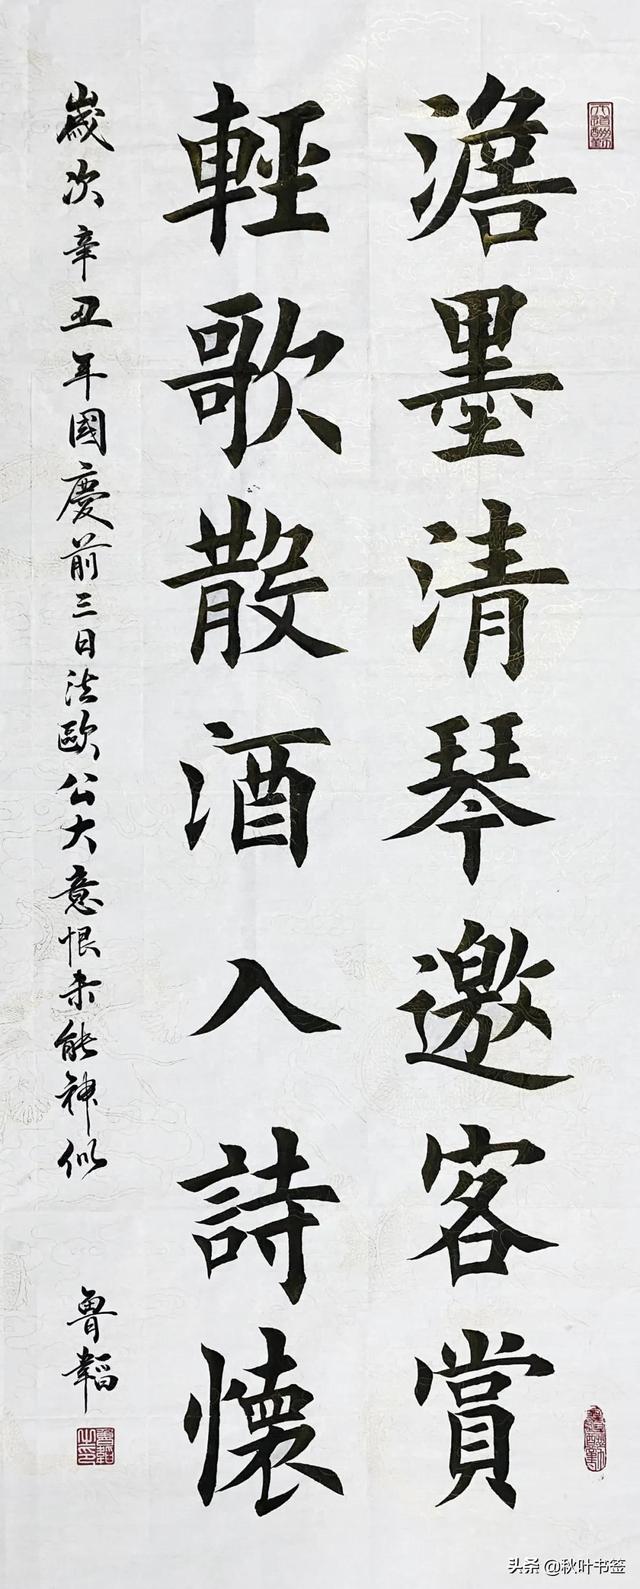 澹墨清琴邀客賞
輕歌散酒入詩懷
歲次辛丑年國慶前三日法歐公大意恨未能神似
魯韜
头条 @秋叶书签